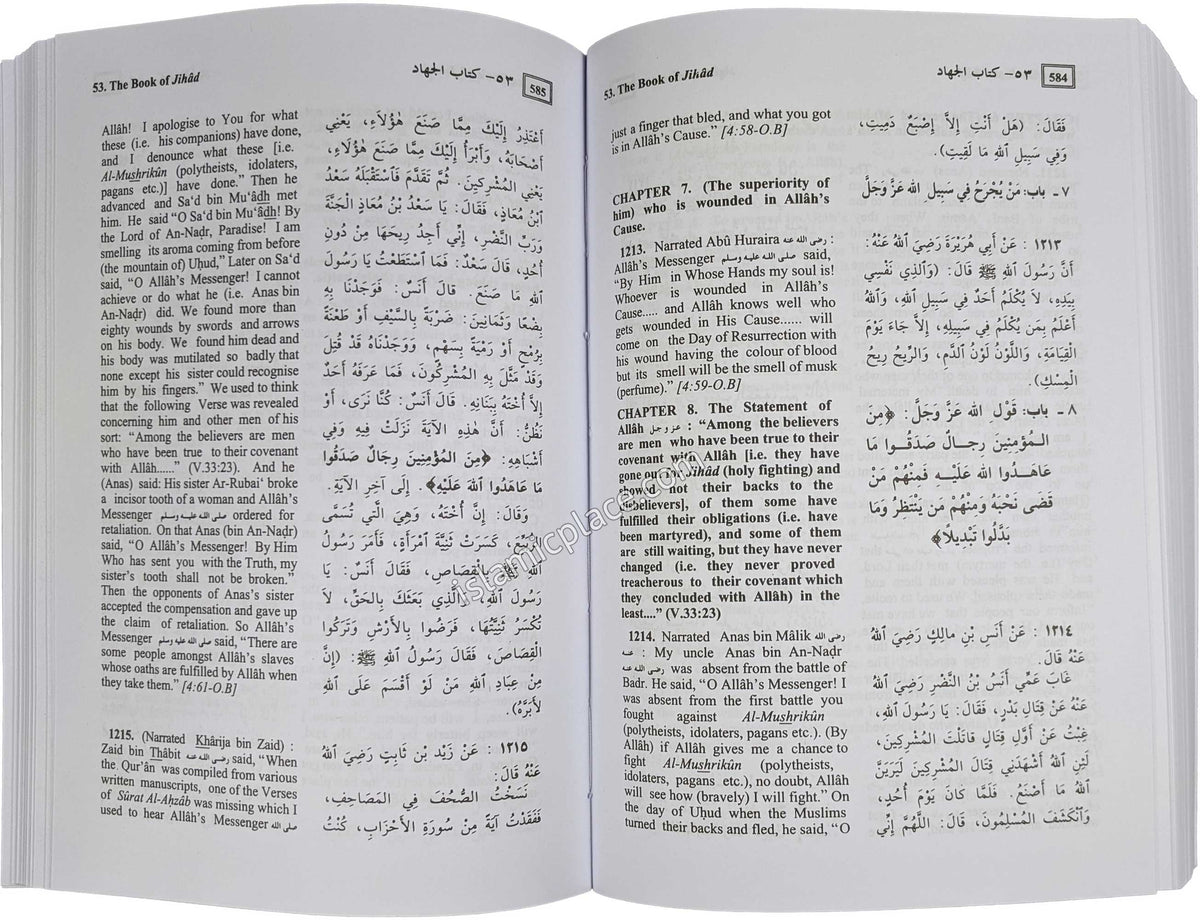 53. The Book of Jihâd
٥٣- كتاب الجهاد
584
just a finger that bled, and what you got
is in Allâh's Cause." [4:58-O.B]
CHAPTER 7. (The superiority of
him) who is wounded in Allâh's
Cause.
1213. Narrated Abû Huraira رضي الله عنه :
Allâh's Messenger صلى الله عليه وسلم said,
"By Him in Whose Hands my soul is!
Whoever is wounded in Allâh's
Cause..... and Allâh knows well who
gets wounded in His Cause...... will
come on the Day of Resurrection with
his wound having the colour of blood
but its smell will be the smell of musk
(perfume)." [4:59-O.B]
CHAPTER 8. The Statement of
Allâh عز وجل : "Among the believers
are men who have been true to their
covenant with Allâh [i.e. they have
gone out for Jihâd (holy fighting) and
showed not their backs to the
disbelievers], of them some have
fulfilled their obligations (i.e. have
been martyred), and some of them
are still waiting, but they have never
changed (i.e. they never proved
treacherous to their covenant which
they concluded with Allâh) in the
least...." (V.33:23)
1214. Narrated Anas bin Mâlik رضي الله
عنه : My uncle Anas bin An-Naḍr
رضي الله عنه was absent from the battle of
Badr. He said, "O Allâh's Messenger! I
was absent from the first battle you
fought against Al-Mushrikûn
(polytheists, idolaters, pagans etc.). (By
Allâh) if Allâh gives me a chance to
fight Al-Mushrikûn (polytheists,
idolaters, pagans etc.), no doubt, Allâh
will see how (bravely) I will fight." On
the day of Uḥud when the Muslims
turned their backs and fled, he said, "O
فَقَالَ: (هَلْ أَنْتِ إِلاَّ إِصْبَعٌ دَمِيتِ،
وَفِي سَبِيلِ اللهِ مَا لَقِيتِ).
٧ - باب: مَنْ يُجْرَحُ فِي سَبِيلِ اللهِ عَزَّ وَجَلَّ
١٢١٣ : عَنْ أَبِي هُرَيْرَةَ رَضِيَ اللهُ عَنْهُ:
أَنَّ رَسُولَ اللهِ ﷺ قَالَ: (وَالَّذِي نَفْسِي
بِيَدِهِ، لاَ يُكْلَمُ أَحَدٌ فِي سَبِيلِ اللهِ، وَاللهُ
أَعْلَمُ بِمَن يُكْلَمُ فِي سَبِيلِهِ، إِلاَّ جَاءَ يَوْمَ
الْقِيَامَةِ، وَاللَّوْنُ لَوْنُ الدَّمِ، وَالرِّيحُ رِيحُ
الْمِسْكِ).
٨ - باب: قَوْلِ اللهِ عَزَّ وَجَلَّ: ﴿مِنَ
الْمُؤْمِنِينَ رِجَالٌ صَدَقُوا مَا
عَاهَدُوا اللهَ عَلَيْهِ فَمِنْهُمْ مَنْ
قَضَى نَحْبَهُ وَمِنْهُمْ مَن يَنْتَظِرُ وَمَا
بَدَّلُوا تَبْدِيلاً﴾
١٢١٤ : عَنْ أَنَسِ بْنِ مَالِكٍ رَضِيَ اللهُ
عَنْهُ قَالَ.
غَابَ عَمِّي أَنَسُ بْنُ النَّضْرِ رَضِيَ اللهُ
عَنْهُ عَنْ قِتَالِ بَدْرٍ، فَقَالَ: يَا رَسُولَ اللهِ،
غِبْتُ عَنْ أَوَّلِ قِتَالٍ قَاتَلْتَ الْمُشْرِكِينَ،
لَئِنِ اللهُ أَشْهَدَنِي قِتَالَ الْمُشْرِكِينَ لَيَرَيَنَّ
اللهُ مَا أَصْنَعُ. فَلَمَّا كَانَ يَوْمُ أُحُدٍ،
وَانْكَشَفَ الْمُسْلِمُونَ، قَالَ: اللَّهُمَّ إِنِّي
53. The Book of Jihâd
٥٣- كتاب الجهاد
585
Allâh! I apologise to You for what
these (i.e. his companions) have done,
and I denounce what these [i.e.
Al-Mushrikûn (polytheists, idolaters,
pagans etc.)] have done." Then he
advanced and Sa'd bin Mu'âdh met
him. He said "O Sa'd bin Mu'âdh! By
the Lord of An-Naḍr, Paradise! I am
smelling its aroma coming from before
(the mountain of) Uḥud," Later on Sa'd
said, "O Allâh's Messenger! I cannot
achieve or do what he (i.e. Anas bin
An-Naḍr) did. We found more than
eighty wounds by swords and arrows
on his body. We found him dead and
his body was mutilated so badly that
none except his sister could recognise
him by his fingers." We used to think
that the following Verse was revealed
concerning him and other men of his
sort: "Among the believers are men
who have been true to their covenant
with Allâh......" (V.33:23). And he
(Anas) said: His sister Ar-Rubai' broke
a incisor tooth of a woman and Allâh's
Messenger صلى الله عليه وسلم ordered for
retaliation. On that Anas (bin An-Naḍr)
said, "O Allâh's Messenger! By Him
Who has sent you with the Truth, my
sister's tooth shall not be broken."
Then the opponents of Anas's sister
accepted the compensation and gave up
the claim of retaliation. So Allâh's
Messenger صلى الله عليه وسلم said, "There are
some people amongst Allâh's slaves
whose oaths are fulfilled by Allâh when
they take them." [4:61-O.B]
1215. (Narrated Khârija bin Zaid) :
Zaid bin Thâbit رضي الله عنه said, "When
the Qur'ân was compiled from various
written manuscripts, one of the Verses
of Sûrat Al-Aḥzâb was missing which I
used to hear Allâh's Messenger صلى الله
أَعْتَذِرُ إِلَيْكَ مِمَّا صَنَعَ هَؤُلاَءِ، يَعْنِي
أَصْحَابَهُ، وَأَبْرَأُ إِلَيْكَ مِمَّا صَنَعَ هَؤُلاَءِ،
يَعْنِي الْمُشْرِكِينَ. ثُمَّ تَقَدَّمَ فَاسْتَقْبَلَهُ سَعْدُ
ابْنُ مُعَاذٍ، فَقَالَ: يَا سَعْدُ بْنُ مُعَاذٍ الْجَنَّةَ
وَرَبِّ النَّضْرِ، إِنِّي أَجِدُ رِيحَهَا مِنْ دُونِ
أُحُدٍ، قَالَ سَعْدٌ: فَمَا اسْتَطَعْتُ يَا رَسُولَ
اللهِ مَا صَنَعَ. قَالَ أَنَسٌ: فَوَجَدْنَا بِهِ
بِضْعًا وَثَمَانِينَ: ضَرْبَةً بِالسَّيْفِ أَوْ طَعْنَةً
بِرُمْحٍ أَوْ رَمْيَةً بِسَهْمٍ، وَوَجَدْنَاهُ قَدْ قُتِلَ
وَقَدْ مَثَّلَ بِهِ الْمُشْرِكُونَ، فَمَا عَرَفَهُ أَحَدٌ
إِلاَّ أُخْتُهُ بِبَنَانِهِ. قَالَ أَنَسٌ: كُنَّا نَرَى، أَوْ
نَظُنُّ: أَنَّ هَذِهِ الآيَةَ نَزَلَتْ فِيهِ وَفِي
أَشْبَاهِهِ: ﴿مِنَ الْمُؤْمِنِينَ رِجَالٌ صَدَقُوا
مَا عَاهَدُوا اللهَ عَلَيْهِ﴾. إِلَى آخِرِ الآيَةِ.
وَقَالَ: إِنَّ أُخْتَهُ، وَهِيَ الَّتِي تُسَمَّى
الرُّبَيِّعَ، كَسَرَتْ ثَنِيَّةَ امْرَأَةٍ، فَأَمَرَ رَسُولُ
اللهِ ﷺ بِالْقِصَاصِ، فَقَالَ أَنَسٌ: يَا
رَسُولَ اللهِ، الَّذِي بَعَثَكَ بِالْحَقِّ، لاَ
تُكْسَرُ ثَنِيَّتُهَا، فَرَضُوا بِالأَرْشِ وَتَرَكُوا
الْقِصَاصَ، فَقَالَ رَسُولُ اللهِ ﷺ: (إِنَّ
مِنْ عِبَادِ اللهِ مَنْ لَوْ أَقْسَمَ عَلَى اللهِ
لأَبَرَّهُ).
١٢١٥ : عَنْ زَيْدِ بْنِ ثَابِتٍ رَضِيَ اللهُ
عَنْهُ قَالَ:
نَسَخْتُ الصُّحُفَ فِي الْمَصَاحِفِ،
فَفَقَدْتُ آيَةً مِنْ سُورَةِ الأَحْزَابِ، كُنْتُ
islamicplace.com